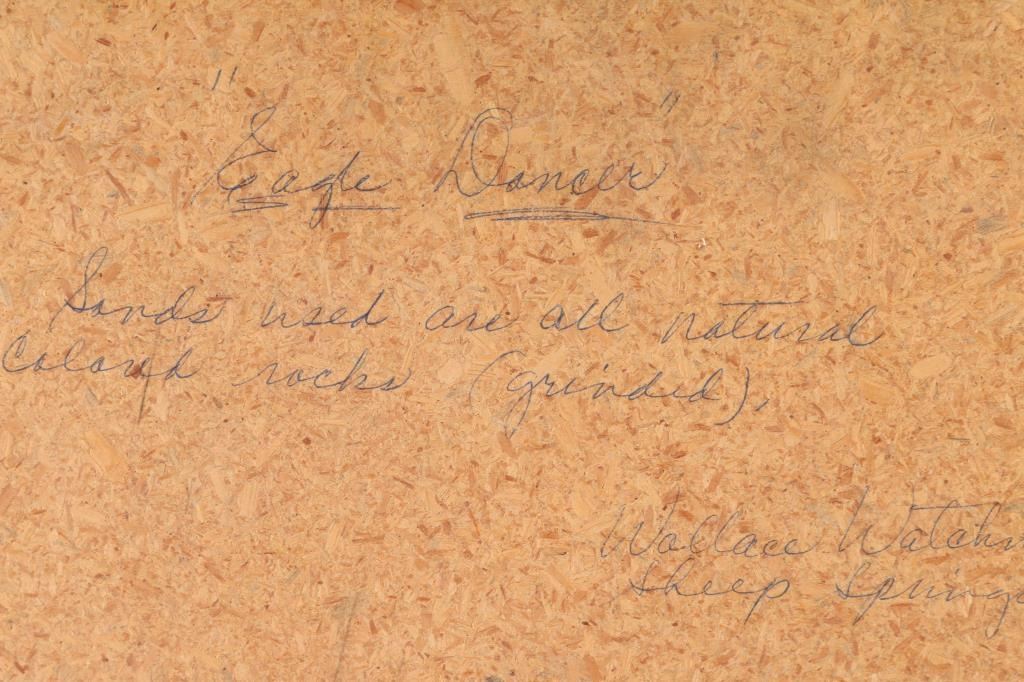 "Eagle Dancer"
Sands used are all natural
Colored rocks (grinded).
Wallace Watchm
Sheep Springs